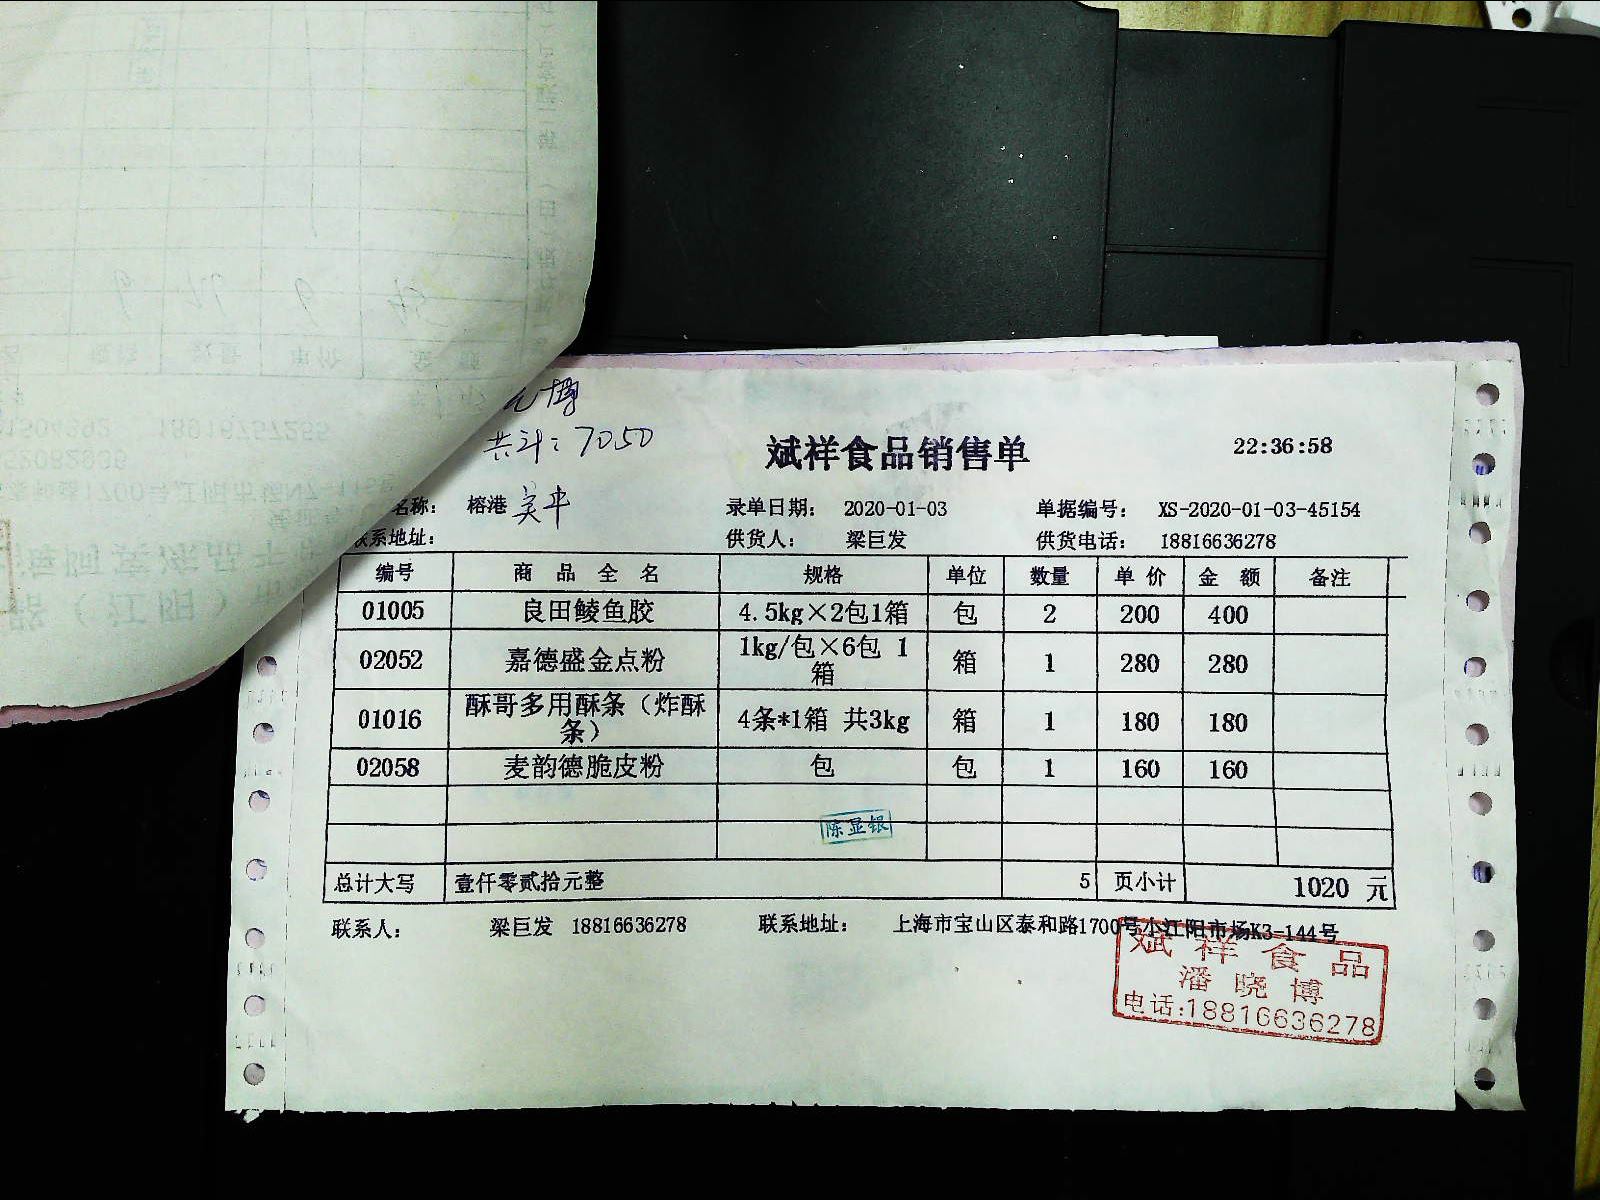 共计：7050
斌祥食品销售单 22:36:58
名称： 榕港 录单日期： 2020-01-03 单据编号： XS-2020-01-03-45154
联系地址： 供货人： 梁巨发 供货电话： 18816636278
编号 商 品 全 名 规格 单位 数量 单 价 金 额 备注
01005 良田鲮鱼胶 4.5kg×2包1箱 包 2 200 400
02052 嘉德盛金点粉 1kg/包×6包 1箱 箱 1 280 280
01016 酥哥多用酥条（炸酥条） 4条*1箱 共3kg 箱 1 180 180
02058 麦韵德脆皮粉 包 包 1 160 160
陈显银
总计大写 壹仟零贰拾元整 5 页小计 1020 元
联系人： 梁巨发 18816636278 联系地址： 上海市宝山区泰和路1700号小江阳市场K3-144号
斌祥食品
潘晓博
电话:18816636278